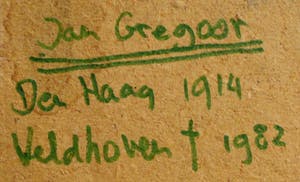 Jan Gregoor
Den Haag 1914
Veldhoven † 1982